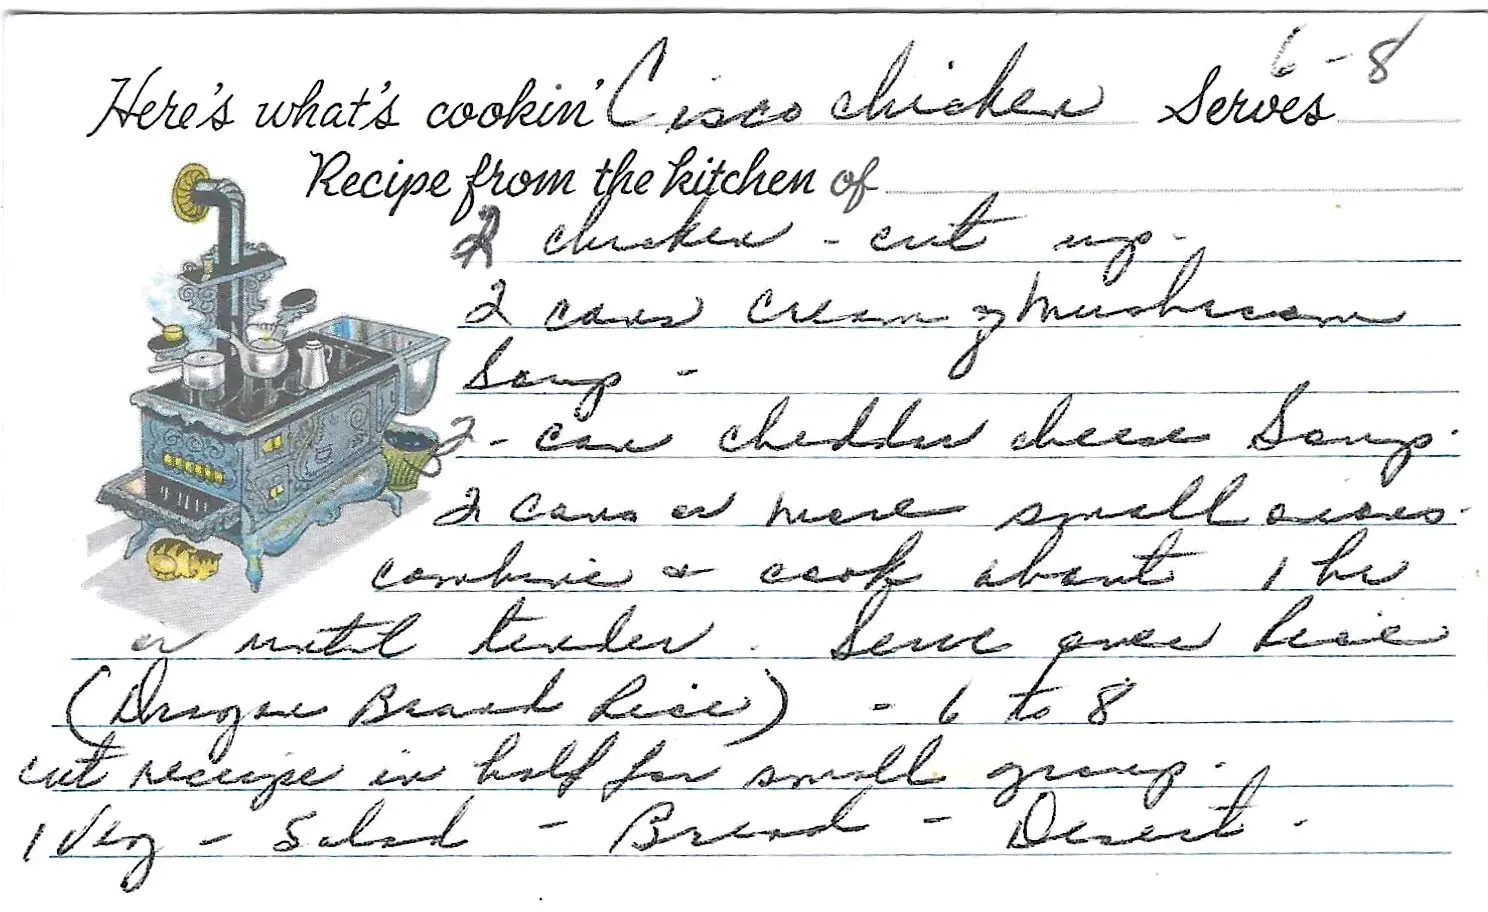 Here's what's cookin' Cisco chicken Serves 6-8
Recipe from the kitchen of
2 chicken - cut up -
2 cans cream of Mushroom
Soup -
2 - can cheddar cheese Soup.
2 cans or more small
combine & cook about 1 hr
or until tender. Serve over Rice
(Dragon Brand Rice) - 6 to 8
cut recipe in half for small group.
1 Veg - Salad - Bread - Desert.